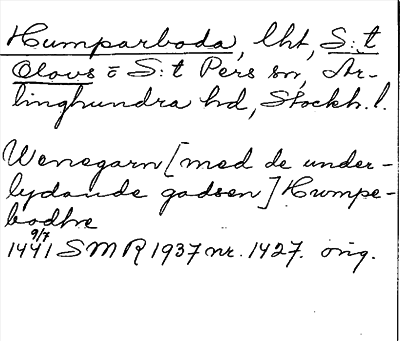 Humparboda, lht, S:t
Olovs o S:t Pers sn, Ar-
linghundra hd, Stockh. l.
Wenegarn [med de under-
lydande godsen] Humpe-
bodhe
9/7
1441 SMR 1937 nr. 1427. orig.